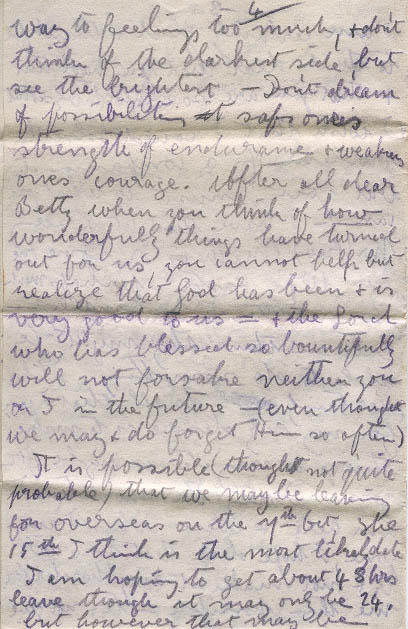 4
way to feelings too much, & don't
think of the darkest side, but
see the brightest — Don't dream
of possibilities it saps one's
strength of endurance & weakens
ones courage. After all dear
Betty when you think of how
wonderfully things have turned
out for us, you cannot help but
realize that God has been & is
very good to us — & the Lord
who has blessed so bountifully
will not forsake neither you
or I in the future — (even though
we may & do forget Him so often)
It is possible (though not quite
probable) that we may be leaving
for overseas on the 7th Oct, The
15th I think is the most likely date
I am hoping to get about 48 hrs
leave though it may only be 24.
but however that may be